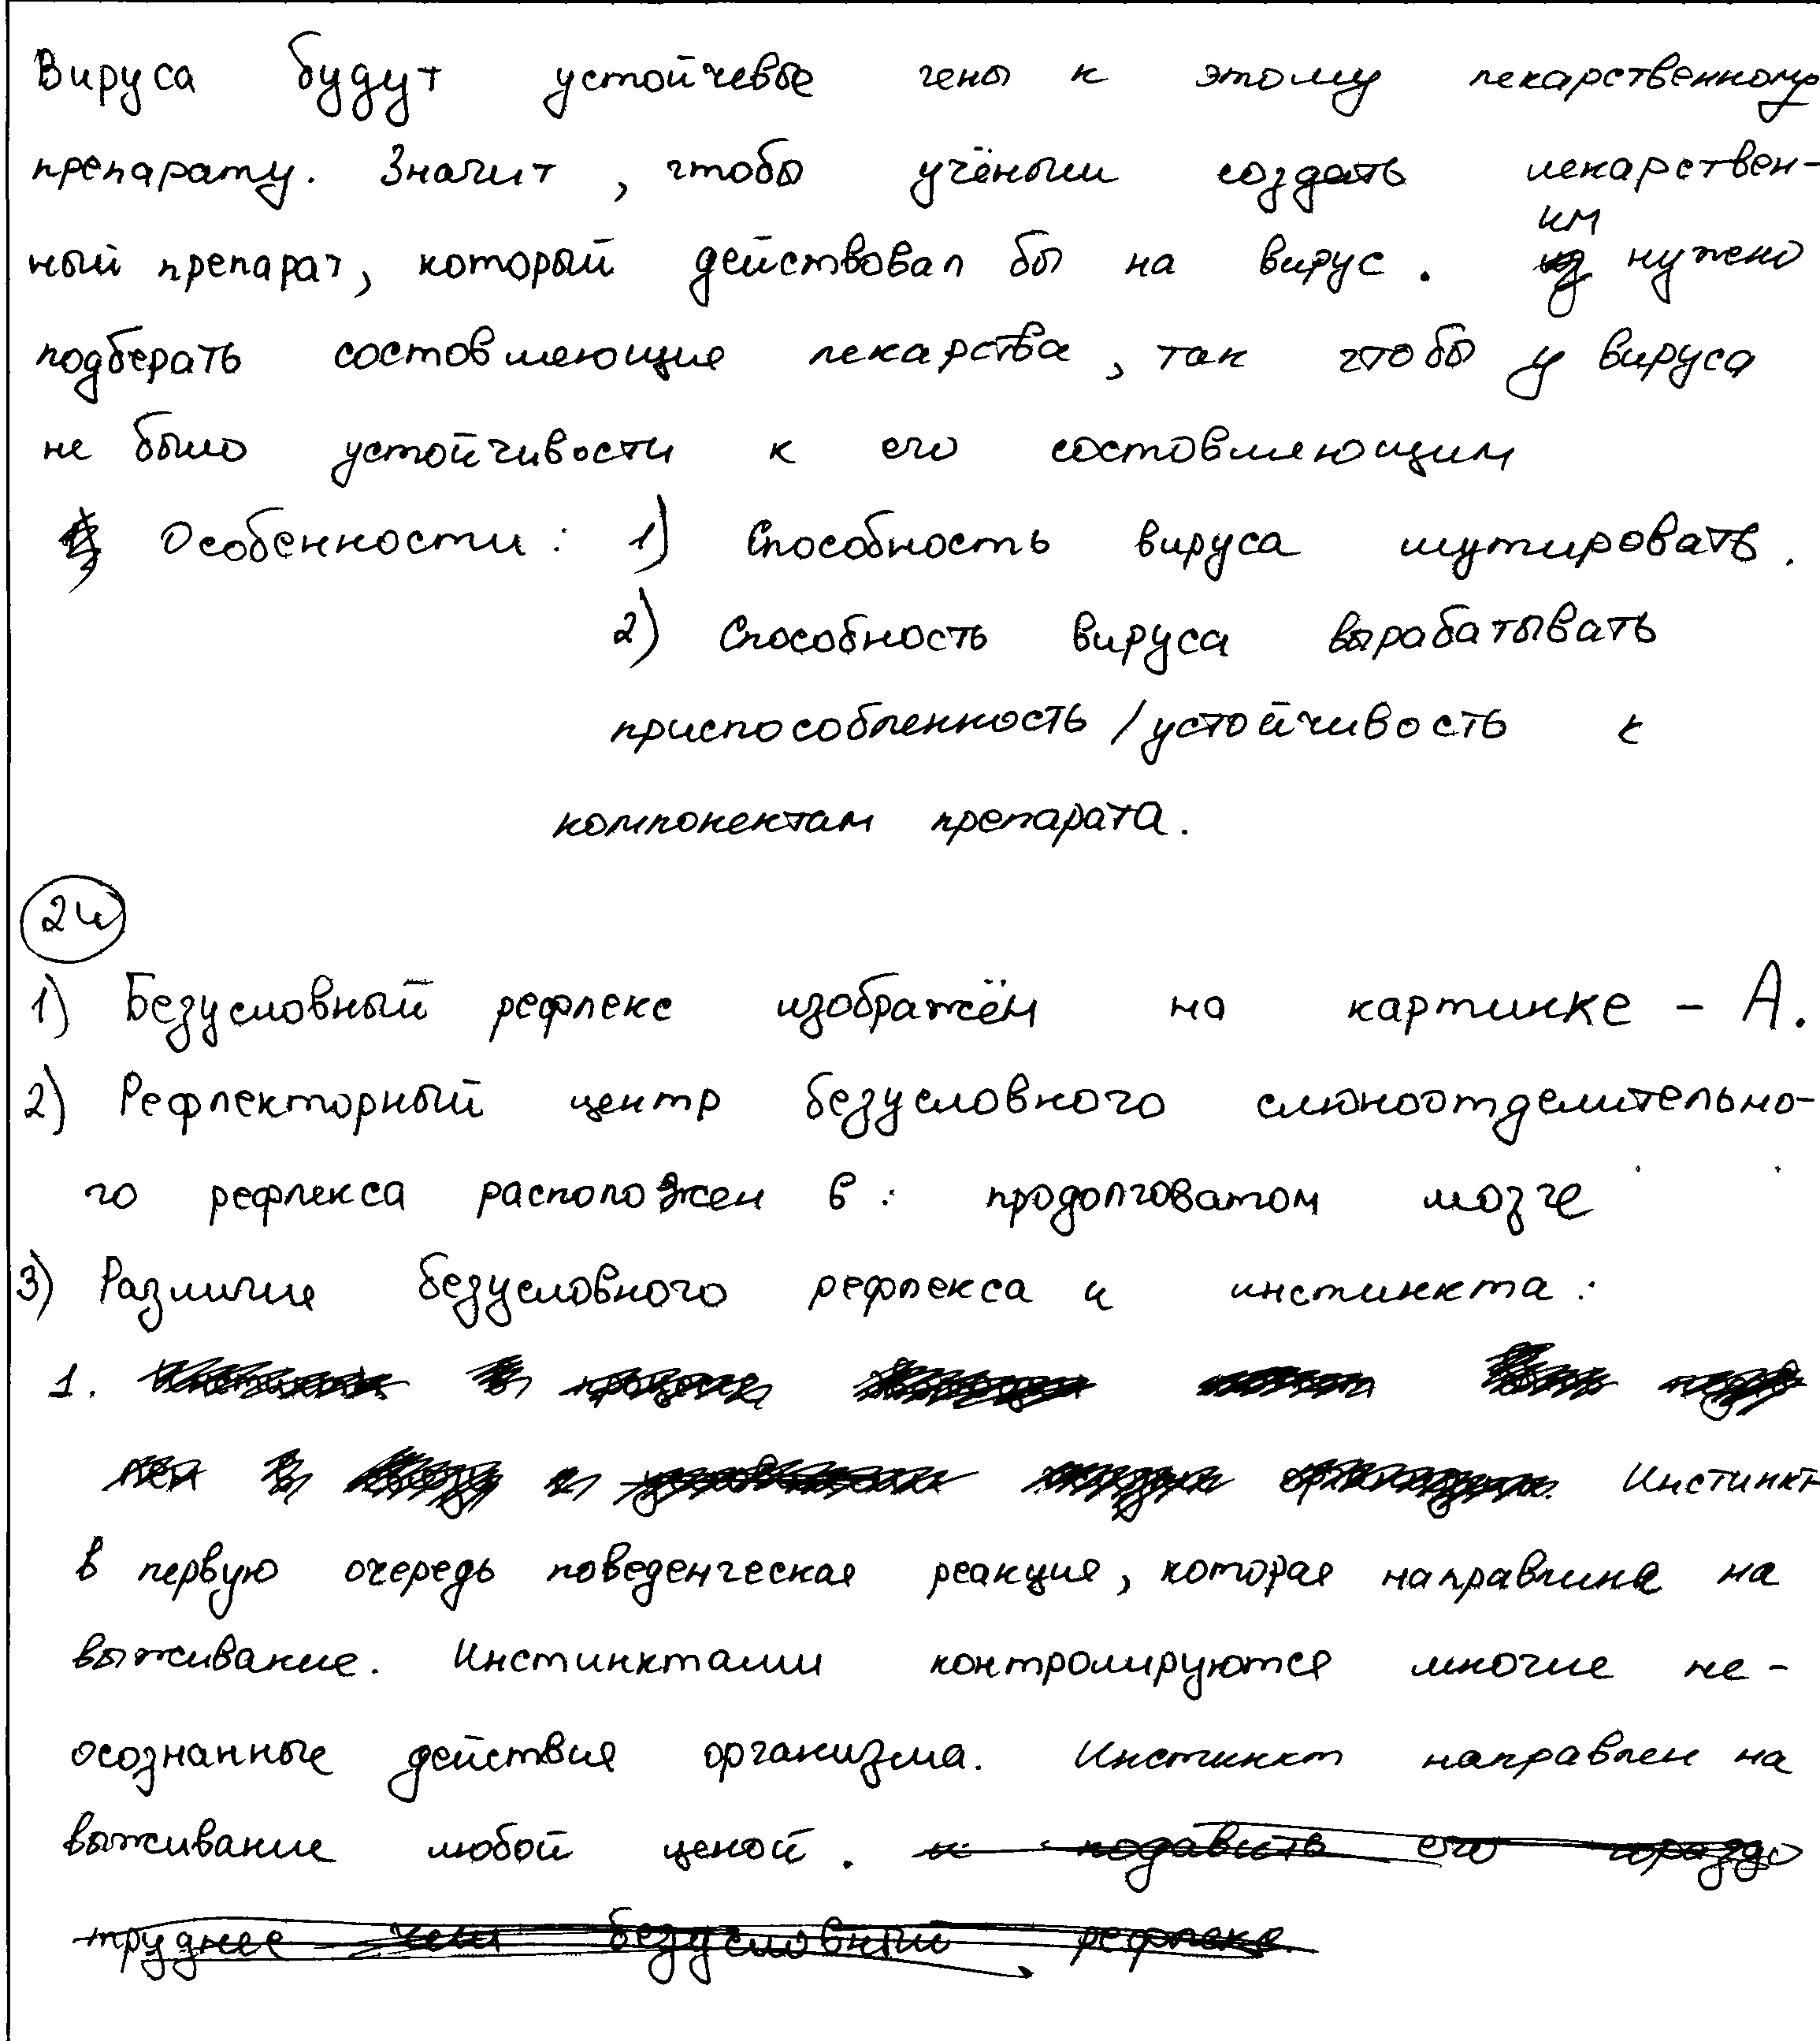 Вируса будут устойчевые гены к этому лекарственному
препарату. Значит, чтобы учёным создать лекарствен-
ный препарат, который действовал бы на вирус. им нужно
подберать состовляющие лекарства, так чтобы у вируса
не было устойчивости к его состовляющим
Особенности: 1) Способность вируса мутировать.
2) Способность вируса вырабатывать
приспособленность / устойчивость к
компонентам препарата.
24
1) Безусловный рефлекс изображён на картинке - А.
2) Рефлекторный центр безусловного слюноотделительно-
го рефлекса расположен в: продолговатом мозге
3) Различие безусловного рефлекса и инстинкта:
1.
Инстинкт
в первую очередь поведенческая реакция, которая направлина на
выживание. Инстинктами контролируются многие не-
осознанные действия организма. Инстинкт направлен на
выживание любой ценой. и подавить его гораздо
труднее чем безусловный рефлекс.